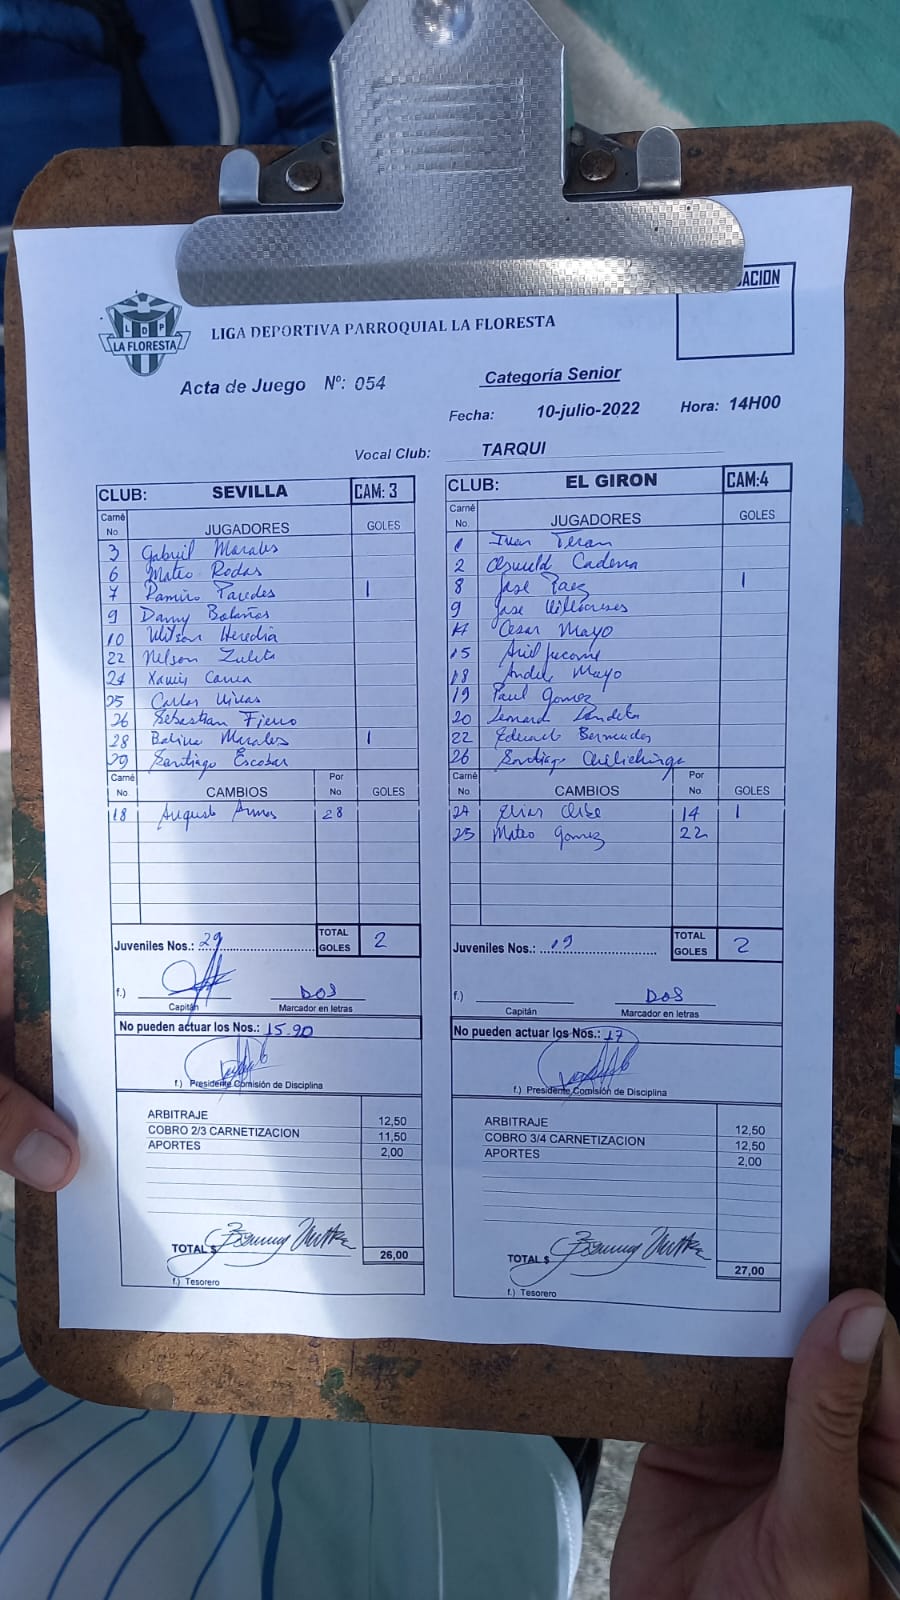 ACION
L D P
LA FLORESTA
LIGA DEPORTIVA PARROQUIAL LA FLORESTA
Acta de Juego Nº: 054
Categoría Senior
Fecha: 10-julio-2022 Hora: 14H00
Vocal Club: TARQUI
CLUB: SEVILLA CAM: 3
Carné No JUGADORES GOLES
3 Gabriel Morales
6 Mateo Rodas
7 Ramiro Paredes 1
9 Danny Bolaños
10 Wilson Heredia
22 Nelson Zuleta
24 Xavier
25 Carlos Vivas
26 Sebastian Fierro
28 Morales 1
29 Santiago Escobar
Carné No. CAMBIOS Por No GOLES
18 Augusto 28
Juveniles Nos.: 29 TOTAL GOLES 2
f.) Capitán DOS Marcador en letras
No pueden actuar los Nos.: 15-90
f.) Presidente Comisión de Disciplina
ARBITRAJE 12,50
COBRO 2/3 CARNETIZACION 11,50
APORTES 2,00
TOTAL $ 26,00
f.) Tesorero
CLUB: EL GIRON CAM:4
Carné No. JUGADORES GOLES
1 Teran
2 Oswald Cadena
8 Jose Paez 1
9 Jose
Cesar Mayo
15 Ariel Jacome
18 Mayo
19 Paul Gomez
20 Leonard Landeta
22 Eduardo Bermudez
26 Santiago Chilichinga
Carné No. CAMBIOS Por No GOLES
24 Elias 14 1
25 Mateo Gomez 22
Juveniles Nos.: 19 TOTAL GOLES 2
f.) Capitán DOS Marcador en letras
No pueden actuar los Nos.: 17
f.) Presidente Comisión de Disciplina
ARBITRAJE 12,50
COBRO 3/4 CARNETIZACION 12,50
APORTES 2,00
TOTAL $ 27,00
f.) Tesorero